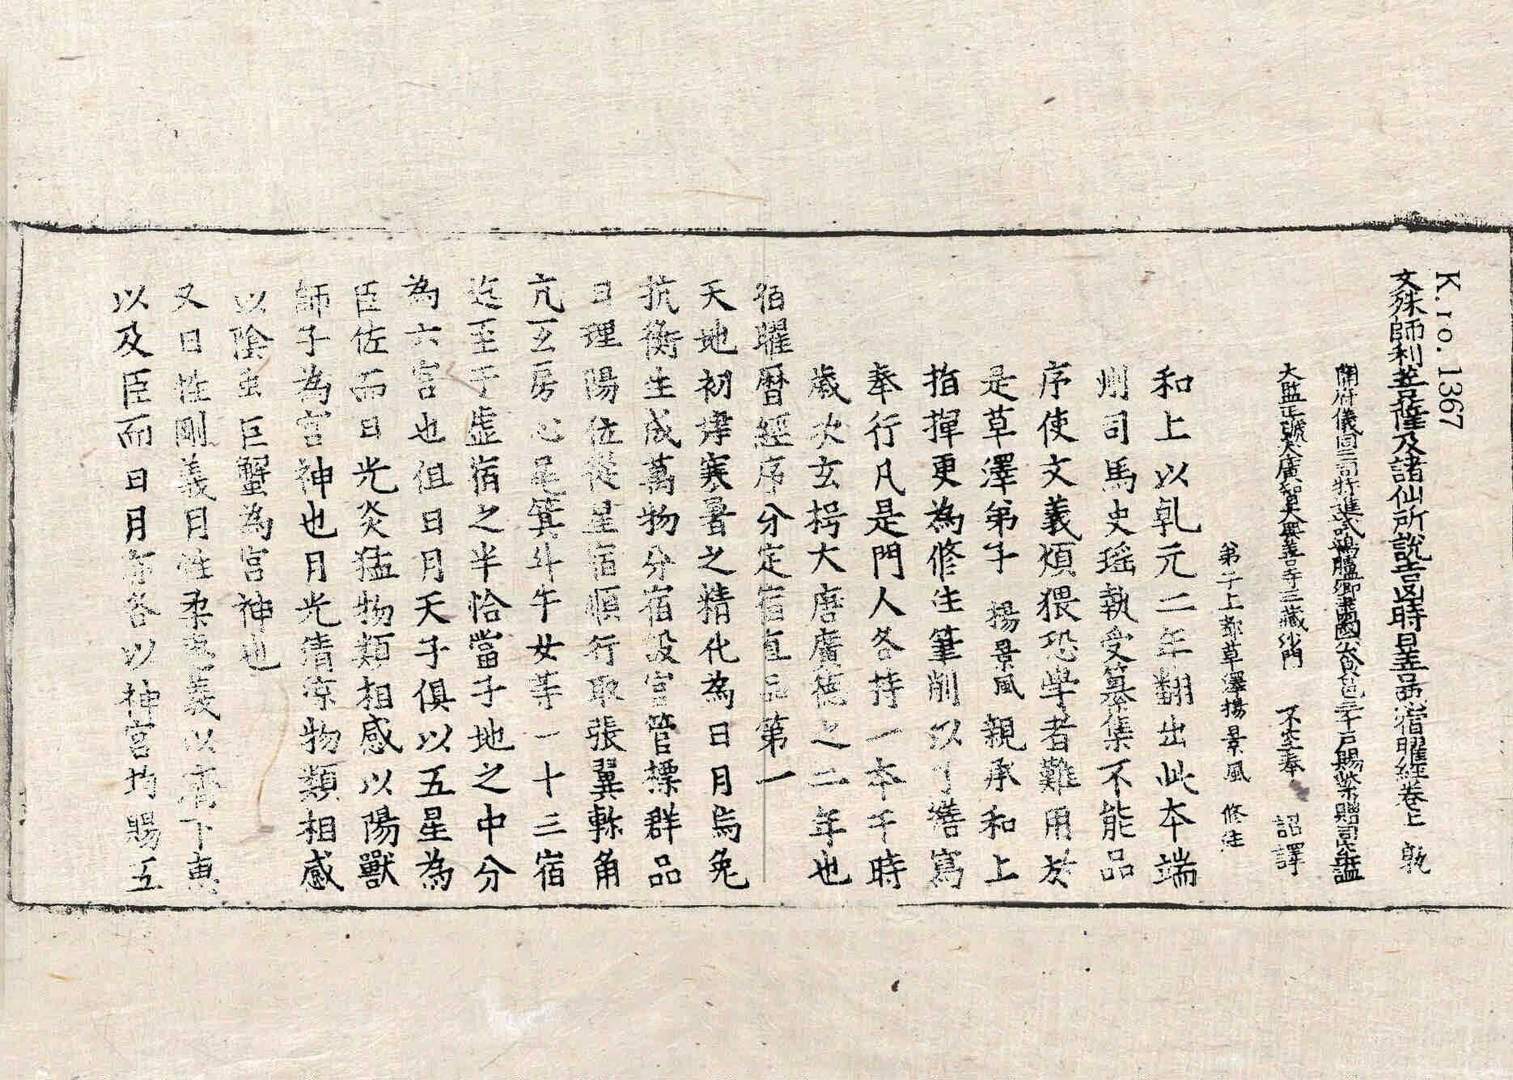 K.ro.1367
文殊師利菩薩及諸仙所說吉凶時日善惡宿曜經卷上 㪅
開府儀同三司特進試鴻臚卿肅國公食邑三千戶賜紫贈司空謚
大監正號大廣智大興善寺三藏沙門 不空奉 詔譯
弟子上都草澤楊景風 修注
和上以乹元二年翻出此本端
州司馬史瑤執受纂集不能品
序使文義煩猥恐學者難用於
是草澤弟子 楊景風 親承和上
指揮更為修注筆削以了繕寫
奉行凡是門人各持一本于時
歲次玄枵大唐廣德之二年也
宿曜曆經序分定宿直品第一
天地初建寒暑之精化為日月烏兔
抗衡生成萬物分宿設宮管標群品
日理陽位從星宿順行取張翼軫角
亢互房心尾箕斗牛女等一十三宿
迄至于虛宿之半恰當子地之中分
為六宮也但日月天子俱以五星為
臣佐而日光炎猛物類相感以陽獸
師子為宮神也月光清涼物類相感
以陰虫巨蟹為宮神也
又日性剛義月性柔惠義以濟下惠
以及臣而日月亦各以神宮均賜五